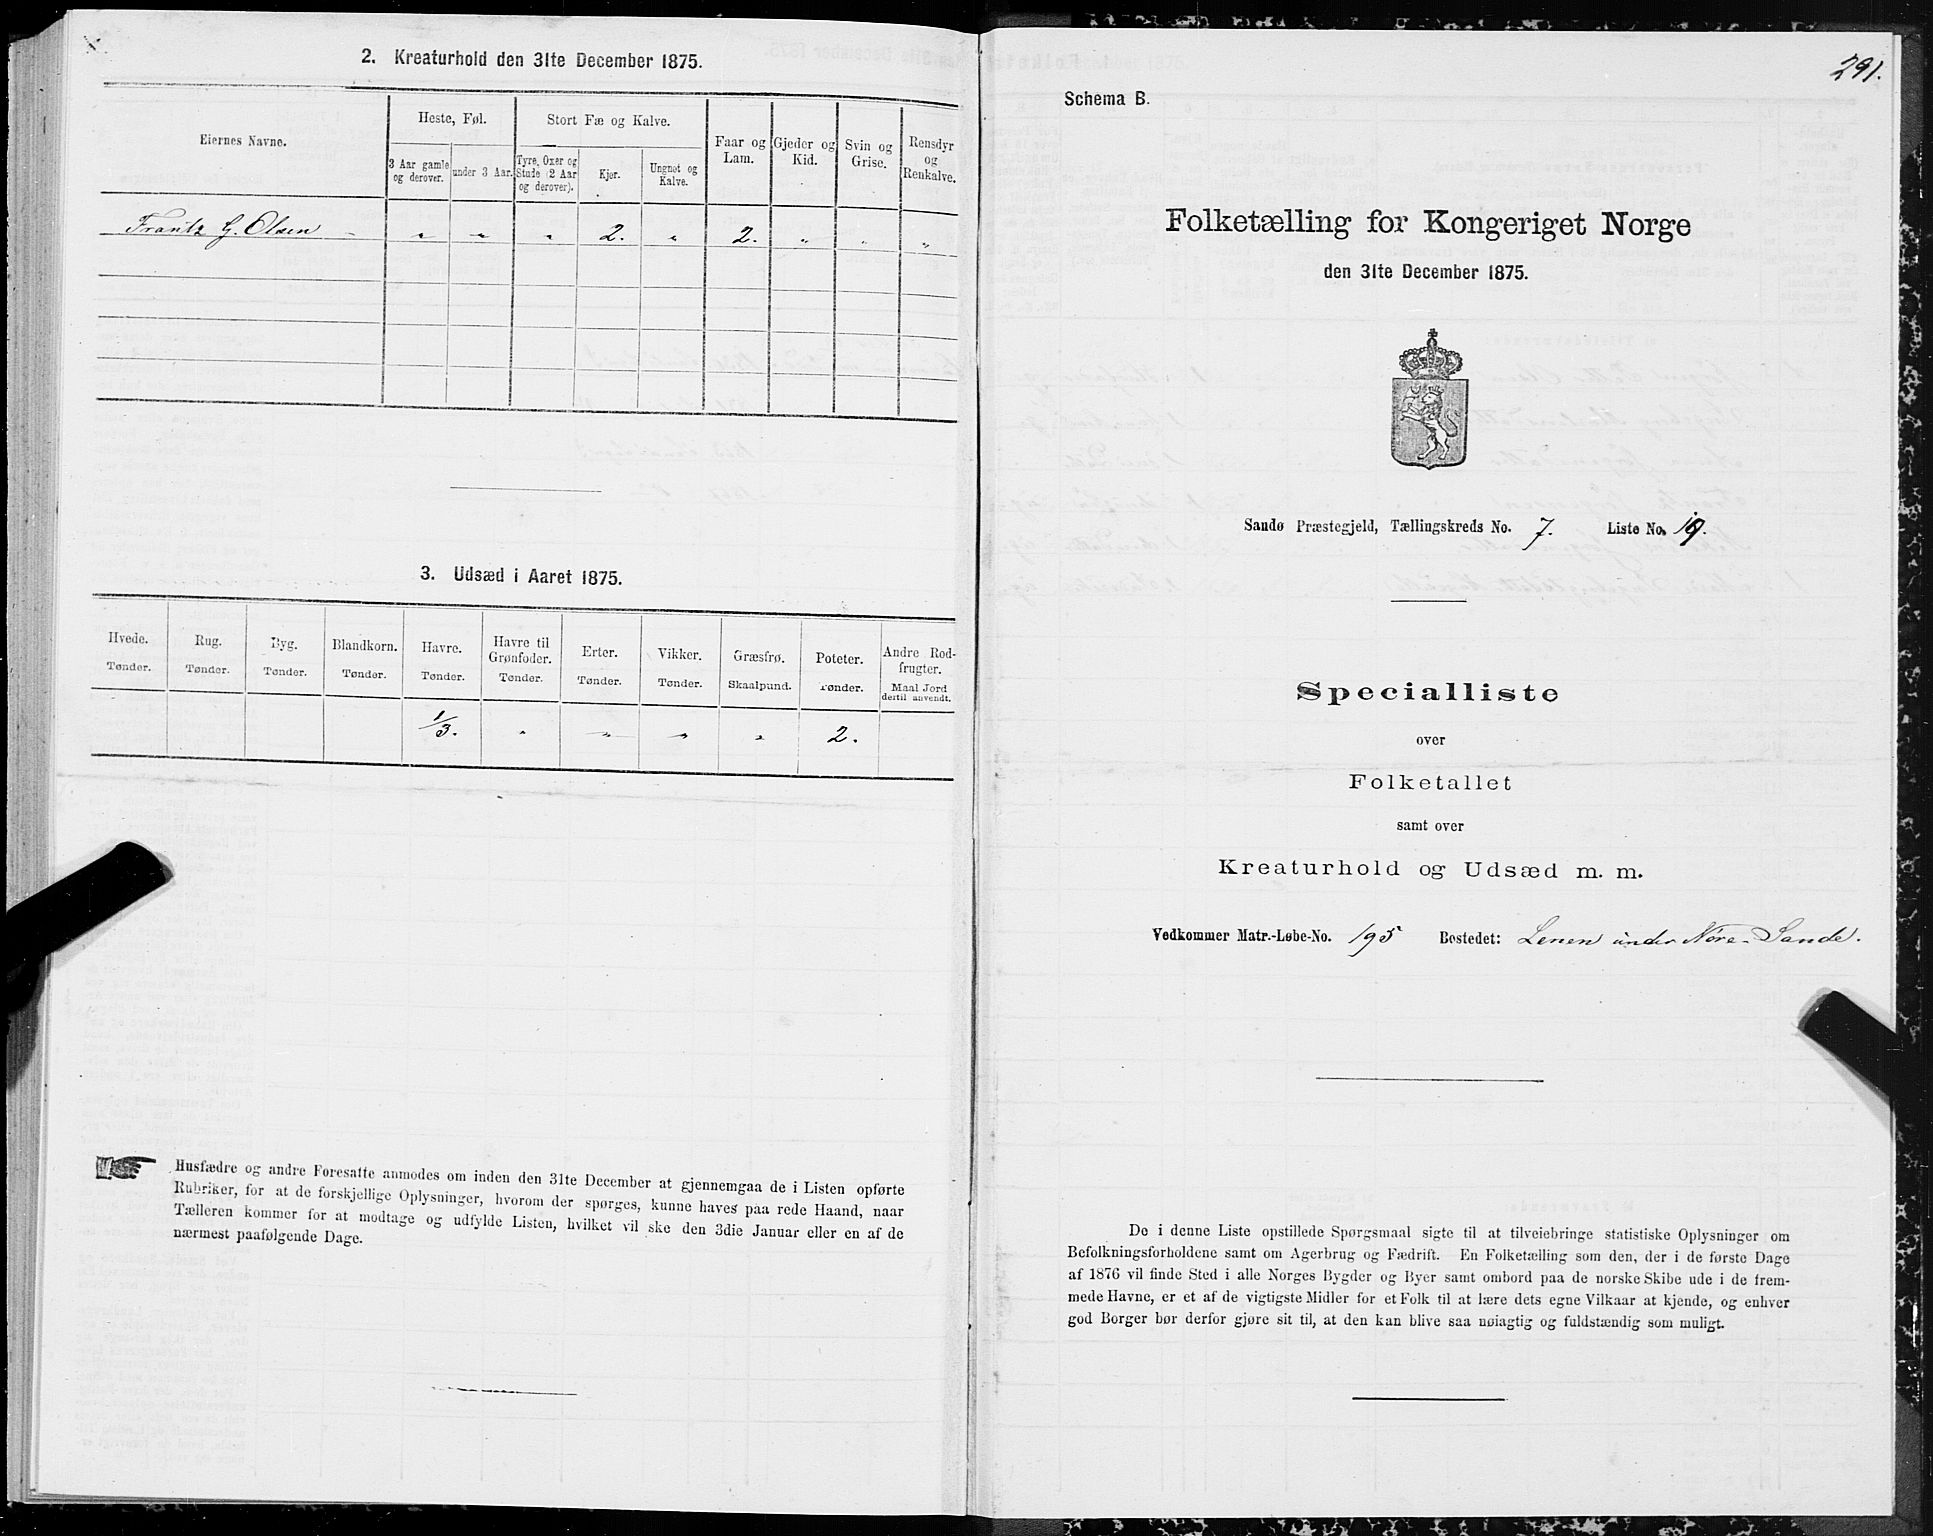 2. Kreaturhold den 31te December 1875.
Eiernes Navne.
Heste, Føl.
Stort Fæ og Kalve.
Faar og Lam.
Gjeder og Kid.
Svin og Grise.
Rensdyr og Renkalve.
3 Aar gamle og derover.
under 3 Aar.
Tyre, Oxer og Stude (2 Aar og derover).
Kjør.
Ungnøt og Kalve.
Frantz G. Olsen " " " 2. " 2. " " "
3. Udsæd i Aaret 1875.
Hvede. Rug. Byg. Blandkorn. Havre. Havre til Grønfoder. Erter. Vikker. Græsfrø. Poteter. Andre Rodfrugter.
Tønder. Tønder. Tønder. Tønder. Tønder. Tønder. Tønder. Tønder. Skaalpund. Tønder. Maal Jord dertil anvendt.
1/3. " " " " 2.
Husfædre og andre Foresatte anmodes om inden den 31te December at gjennemgaa de i Listen opførte
Rubriker, for at de forskjellige Oplysninger, hvorom der spørges, kunne haves paa rede Haand, naar
Tælleren kommer for at modtage og udfylde Listen, hvilket vil ske den 3die Januar eller en af de
nærmest paafølgende Dage.
291.
Schema B.
Folketælling for Kongeriget Norge
den 31te December 1875.
Sandø Præstegjeld, Tællingskreds No. 7. Liste No. 19.
Specialliste
over
Folketallet
samt over
Kreaturhold og Udsæd m. m.
Vedkommer Matr.-Løbe-No. 195 Bostedet: Lenen under Nøre-Sande.
De i denne Liste opstillede Spørgsmaal sigte til at tilveiebringe statistiske Oplysninger om
Befolkningsforholdene samt om Agerbrug og Fædrift. En Folketælling som den, der i de første Dage
af 1876 vil finde Sted i alle Norges Bygder og Byer samt ombord paa de norske Skibe ude i de frem-
mede Havne, er et af de vigtigste Midler for et Folk til at lære dets egne Vilkaar at kjende, og enhver
god Borger bør derfor gjøre sit til, at den kan blive saa nøiagtig og fuldstændig som muligt.